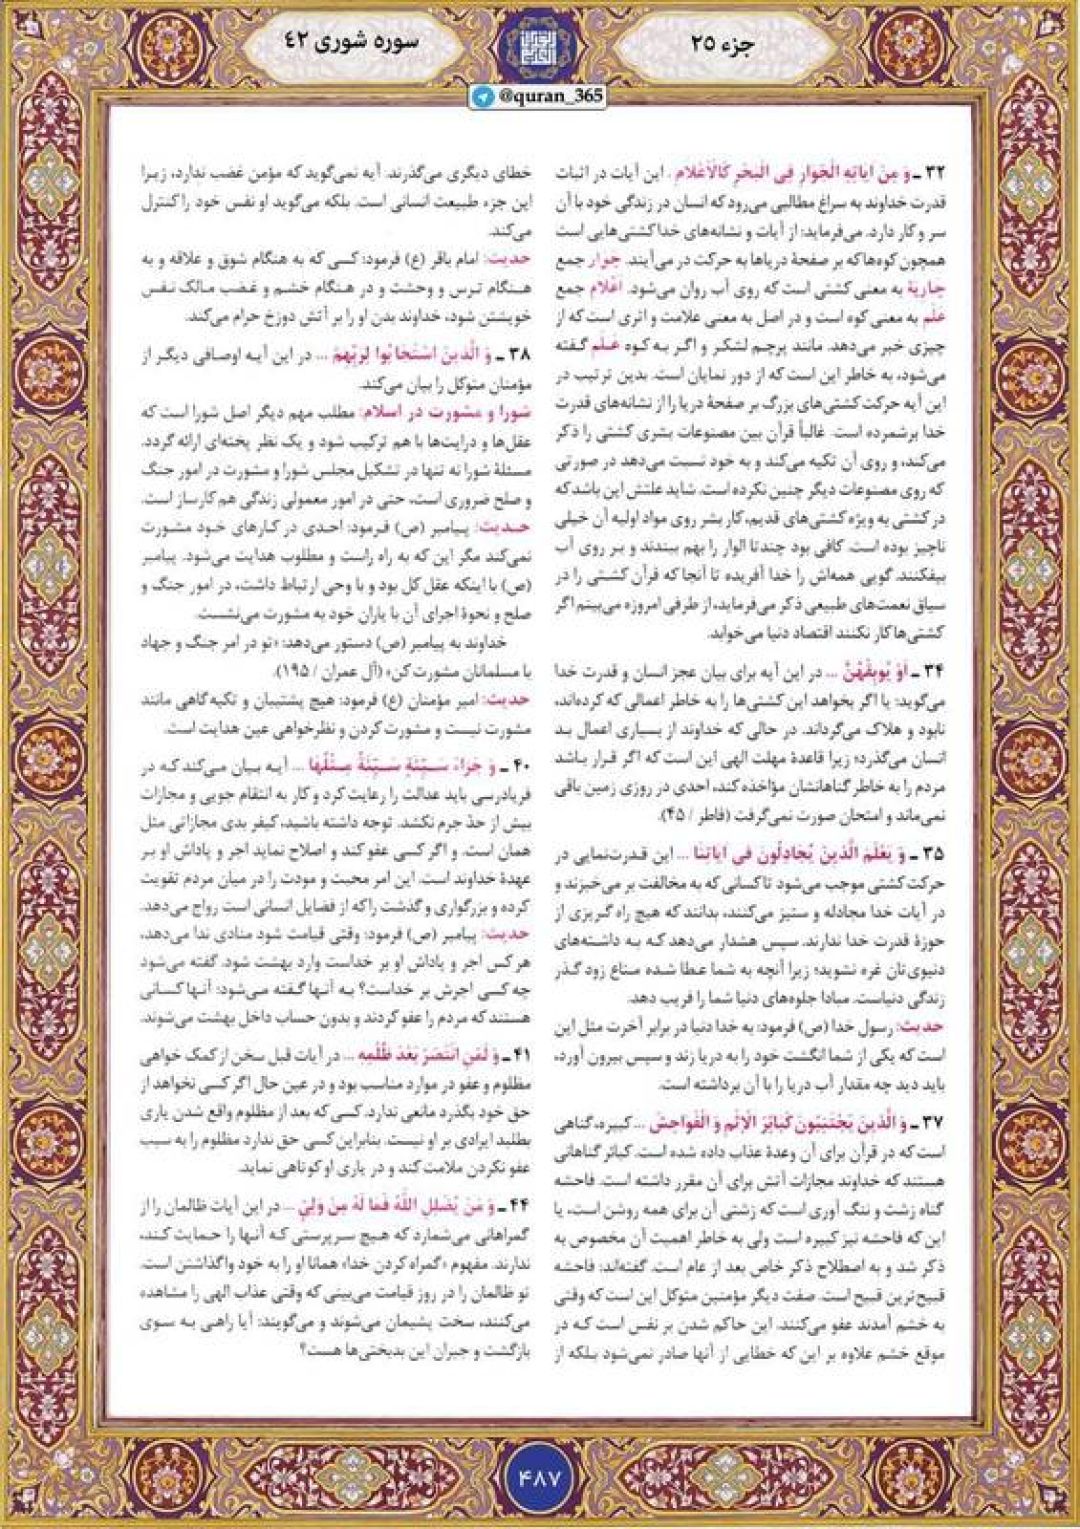 جزء ۲۵
سوره شوری ۴۲
@quran_365
۳۲ ـ وَ مِنْ ایاتِهِ الْجَوارِ فِی الْبَحْرِ کَالْاَعْلامِ . این آیات در اثبات
قدرت خداوند به سراغ مطالبی می‌رود که انسان در زندگی خود با آن
سر و کار دارد. می‌فرماید: از آیات و نشانه‌های خدا کشتی‌هایی است
همچون کوه‌ها که بر صفحهٔ دریاها به حرکت در می‌آیند. جوار جمع
جاریة به معنی کشتی است که روی آب روان می‌شود. اَعْلام جمع
عَلَم به معنی کوه است و در اصل به معنی علامت و اثری است که از
چیزی خبر می‌دهد. مانند پرچم لشکر و اگر به کوه عَلَم گفته
می‌شود، به خاطر این است که از دور نمایان است. بدین ترتیب در
این آیه حرکت کشتی‌های بزرگ بر صفحهٔ دریا را از نشانه‌های قدرت
خدا برشمرده است. غالباً قرآن بین مصنوعات بشری کشتی را ذکر
می‌کند، و روی آن تکیه می‌کند و به خود نسبت می‌دهد در صورتی
که روی مصنوعات دیگر چنین نکرده است. شاید علتش این باشد که
در کشتی به ویژه کشتی‌های قدیم، کار بشر روی مواد اولیه آن خیلی
ناچیز بوده است. کافی بود چند تا الوار را بهم ببندند و بر روی آب
بیفکنند. گویی همه‌اش را خدا آفریده تا آنجا که قرآن کشتی را در
سیاق نعمت‌های طبیعی ذکر می‌فرماید، از طرفی امروزه می‌بینم اگر
کشتی‌ها کار نکنند اقتصاد دنیا می‌خوابد.
۳۴ ـ اَوْ یُوبِقْهُنَّ ... در این آیه برای بیان عجز انسان و قدرت خدا
می‌گوید: یا اگر بخواهد این کشتی‌ها را به خاطر اعمالی که کرده‌اند،
نابود و هلاک می‌گرداند. در حالی که خداوند از بسیاری اعمال بد
انسان می‌گذرد؛ زیرا قاعدهٔ مهلت الهی این است که اگر قرار باشد
مردم را به خاطر گناهانشان مؤاخذه کند، احدی در روزی زمین باقی
نمی‌ماند و امتحان صورت نمی‌گرفت (فاطر / ۴۵).
۳۵ ـ وَ یَعْلَمَ الَّذینَ یُجادِلُونَ فی ایاتِنا ... این قدرت‌نمایی در
حرکت کشتی موجب می‌شود تا کسانی که به مخالفت بر می‌خیزند و
در آیات خدا مجادله و ستیز می‌کنند، بدانند که هیچ راه گریزی از
حوزهٔ قدرت خدا ندارند. سپس هشدار می‌دهد که به داشته‌های
دنیوی‌تان غره نشوید؛ زیرا آنچه به شما عطا شده متاع زود گذر
زندگی دنیاست. مبادا جلوه‌های دنیا شما را فریب دهد.
حدیث: رسول خدا (ص) فرمود: به خدا دنیا در برابر آخرت مثل این
است که یکی از شما انگشت خود را به دریا زند و سپس بیرون آورد،
باید دید چه مقدار آب دریا را با آن برداشته است.
۳۷ ـ وَ الَّذینَ یَجْتَنِبُونَ کَبائِرَ الْاِثْمِ وَ الْفَواحِشَ ... کبیره، گناهی
است که در قرآن برای آن وعدهٔ عذاب داده شده است. کبائر گناهانی
هستند که خداوند مجازات آتش برای آن مقرر داشته است. فاحشه
گناه زشت و ننگ آوری است که زشتی آن برای همه روشن است، یا
این که فاحشه نیز کبیره است ولی به خاطر اهمیت آن مخصوص به
ذکر شد و به اصطلاح ذکر خاص بعد از عام است. گفته‌اند: فاحشه
قبیح‌ترین قبیح است. صفت دیگر مؤمنین متوکل این است که وقتی
به خشم آمدند عفو می‌کنند. این حاکم شدن بر نفس است که در
موقع خشم علاوه بر این که خطایی از آنها صادر نمی‌شود بلکه از
خطای دیگری می‌گذرند. آیه نمی‌گوید که مؤمن غضب ندارد، زیرا
این جزء طبیعت انسانی است. بلکه می‌گوید او نفس خود را کنترل
می‌کند.
حدیث: امام باقر (ع) فرمود: کسی که به هنگام شوق و علاقه و به
هنگام ترس و وحشت و در هنگام خشم و غضب مالک نفس
خویشتن شود، خداوند بدن او را بر آتش دوزخ حرام می‌کند.
۳۸ ـ وَ الَّذینَ اسْتَجابُوا لِرَبِّهِمْ ... در این آیه اوصافی دیگر از
مؤمنان متوکل را بیان می‌کند.
شورا و مشورت در اسلام: مطلب مهم دیگر اصل شورا است که
عقل‌ها و درایت‌ها با هم ترکیب شود و یک نظر پخته‌ای ارائه گردد.
مسئلهٔ شورا نه تنها در تشکیل مجلس شورا و مشورت در امور جنگ
و صلح ضروری است، حتی در امور معمولی زندگی هم کارساز است.
حدیث: پیامبر (ص) فرمود: احدی در کارهای خود مشورت
نمی‌کند مگر این که به راه راست و مطلوب هدایت می‌شود. پیامبر
(ص) با اینکه عقل کل بود و با وحی ارتباط داشت، در امور جنگ و
صلح و نحوهٔ اجرای آن با یاران خود به مشورت می‌نشست.
خداوند به پیامبر (ص) دستور می‌دهد: «تو در امر جنگ و جهاد
با مسلمانان مشورت کن» (آل عمران / ۱۹۵).
حدیث: امیر مؤمنان (ع) فرمود: هیچ پشتیبان و تکیه‌گاهی مانند
مشورت نیست و مشورت کردن و نظرخواهی عین هدایت است.
۴۰ ـ وَ جَزاءُ سَیِّئَةٍ سَیِّئَةٌ مِثْلُها ... آیه بیان می‌کند که در
فریادرسی باید عدالت را رعایت کرد و کار به انتقام جویی و مجازات
بیش از حدّ جرم نکشد. توجه داشته باشید، کیفر بدی مجازاتی مثل
همان است. و اگر کسی عفو کند و اصلاح نماید اجر و پاداش او بر
عهدهٔ خداوند است. این امر محبت و مودت را در میان مردم تقویت
کرده و بزرگواری و گذشت را که از فضایل انسانی است رواج می‌دهد.
حدیث: پیامبر (ص) فرمود: وقتی قیامت شود منادی ندا می‌دهد،
هر کس اجر و پاداش او بر خداست وارد بهشت شود. گفته می‌شود
چه کسی اجرش بر خداست؟ به آنها گفته می‌شود: آنها کسانی
هستند که مردم را عفو کردند و بدون حساب داخل بهشت می‌شوند.
۴۱ ـ وَ لَمَنِ انْتَصَرَ بَعْدَ ظُلْمِهِ ... در آیات قبل سخن از کمک خواهی
مظلوم و عفو در موارد مناسب بود و در عین حال اگر کسی نخواهد از
حق خود بگذرد مانعی ندارد. کسی که بعد از مظلوم واقع شدن یاری
بطلبد ایرادی بر او نیست. بنابراین کسی حق ندارد مظلوم را به سبب
عفو نکردن ملامت کند و در یاری او کوتاهی نماید.
۴۴ ـ وَ مَنْ یُضْلِلِ اللّٰهُ فَما لَهُ مِنْ وَلِیٍّ ... در این آیات ظالمان را از
گمراهانی می‌شمارد که هیچ سرپرستی که آنها را حمایت کند،
ندارند. مفهوم «گمراه کردن خدا» همانا او را به خود واگذاشتن است.
تو ظالمان را در روز قیامت می‌بینی که وقتی عذاب الهی را مشاهده
می‌کنند، سخت پشیمان می‌شوند و می‌گویند: آیا راهی به سوی
بازگشت و جبران این بدبختی‌ها هست؟
۴۸۷